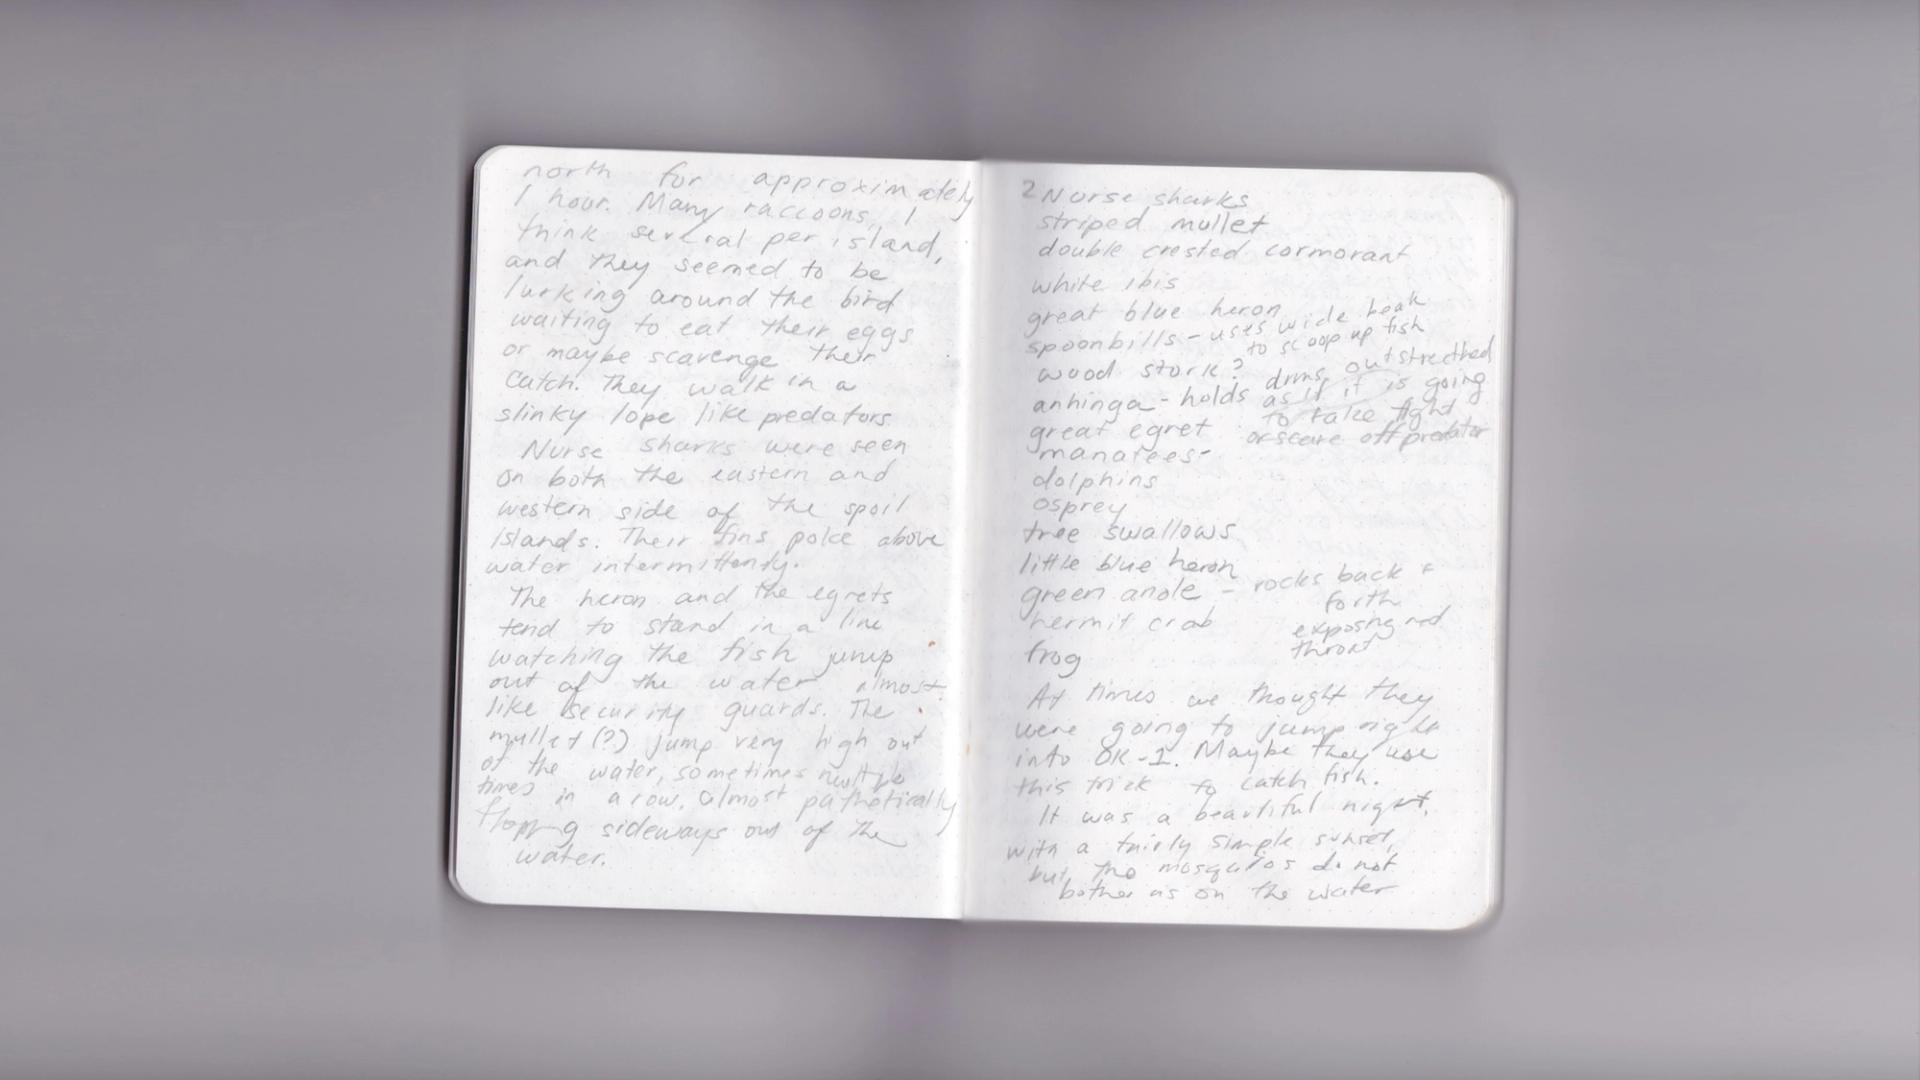 north for approximately
1 hour. Many raccoons, I
think several per island,
and they seemed to be
lurking around the bird
waiting to eat their eggs
or maybe scavenge their
catch. They walk in a
slinky lope like predators.
Nurse sharks were seen
on both the eastern and
western side of the spoil
Islands. Their fins poke above
water intermittently.
The heron and the egrets
tend to stand in a line
watching the fish jump
out of the water almost
like security guards. The
mullet (?) jump very high out
of the water, sometimes multiple
times in a row, almost pathetically
flopping sideways out of the
water.
2 Nurse sharks
striped mullet
double crested cormorant
white ibis
great blue heron
spoonbills - uses wide beak
to scoop up fish
wood stork?
anhinga - holds arms outstretched
as if it is going
to take flight
or scare off predator
great egret
manatees -
dolphins
osprey
tree swallows
little blue heron
green anole - rocks back +
forth
exposing red
throat
hermit crab
frog
At times we thought they
were going to jump right
into OK-1. Maybe they use
this trick to catch fish.
It was a beautiful night,
with a fairly simple sunset,
but the mosquitos do not
bother us on the water